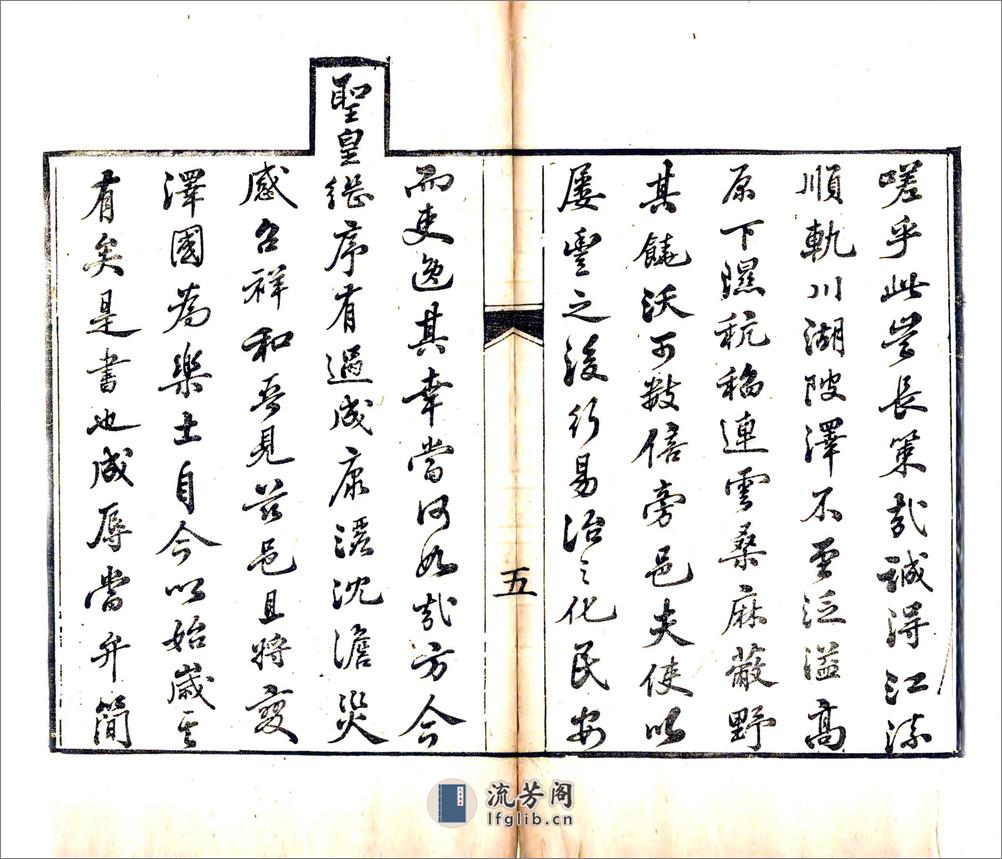 嗟乎此豈長策哉誠得江流
順軌川湖陂澤不至泛溢高
原下隰秔稻連雲桑麻蔽野
其饒沃可數倍旁邑夫使以
屢豐之後行易治之化民安
五
而吏逸其幸當何如哉方今
聖皇繼序有過成康澤沈澹災
感召祥和吾見茲邑且將變
澤國為樂土自今以始歲其
有矣是書也成辱當弁簡
流芳阁
lfglib.cn